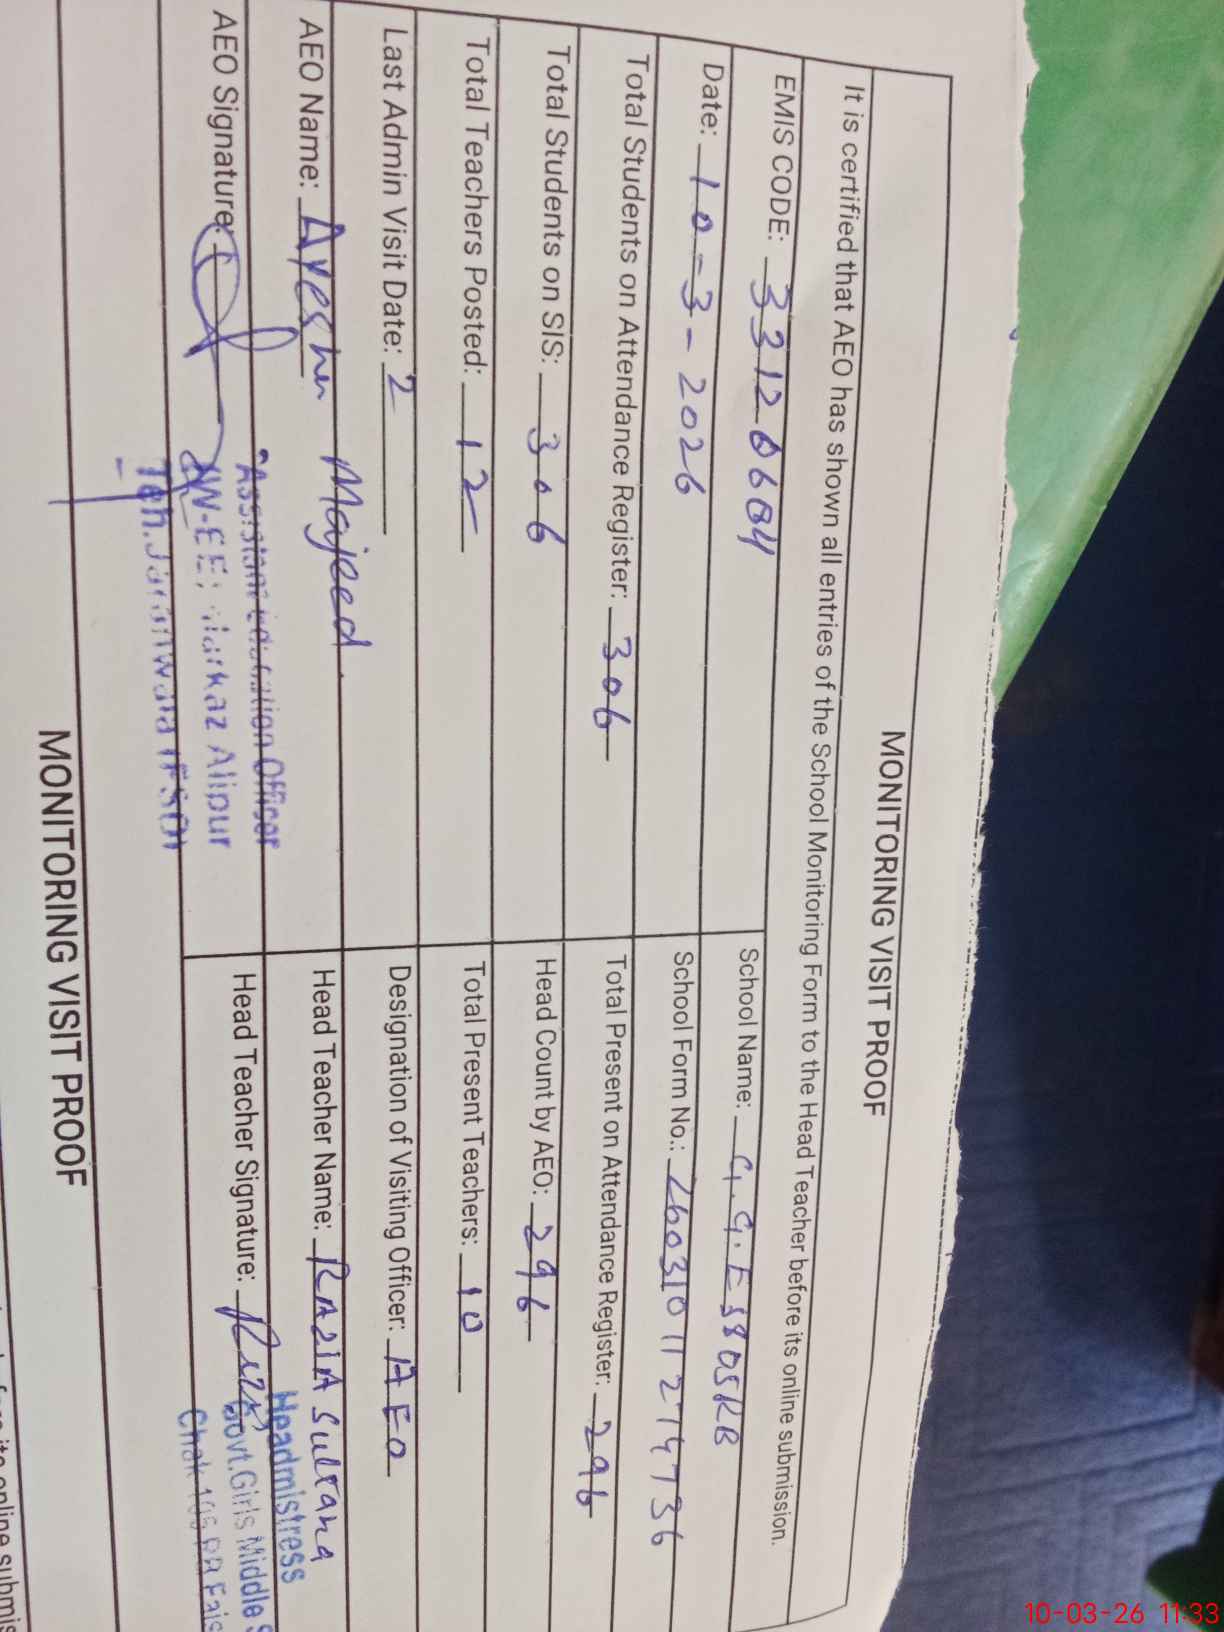 MONITORING VISIT PROOF
It is certified that AEO has shown all entries of the School Monitoring Form to the Head Teacher before its online submission.
EMIS CODE: 33120604 School Name: G.G.E S 805RB
Date: 10-3-2026 School Form No.: 2603101127147736
Total Students on Attendance Register: 306 Total Present on Attendance Register: 296
Total Students on SIS: 306 Head Count by AEO: 296
Total Teachers Posted: 12 Total Present Teachers: 10
Last Admin Visit Date: 2 Designation of Visiting Officer: AEO
AEO Name: Ayesha Majeed. Head Teacher Name: RAZIA Sultana
AEO Signature: Head Teacher Signature:
Assistant Education Officer
(W-EE) Markaz Alipur
Teh. Jaranwala (FSD)
Headmistress
Govt. Girls Middle S
Chak RB Fais
MONITORING VISIT PROOF
before its online submis
10-03-26 11:33